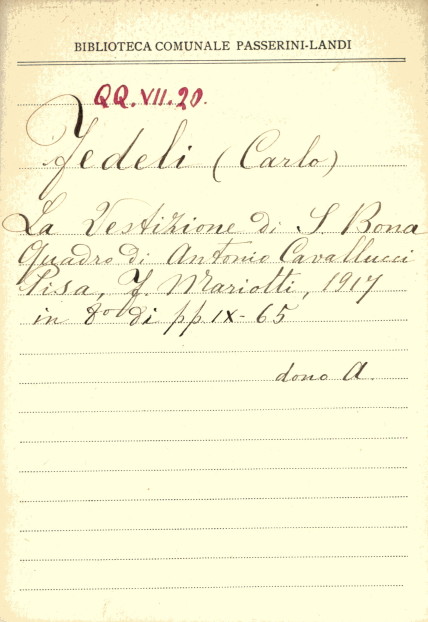 BIBLIOTECA COMUNALE PASSERINI-LANDI
QQ.VII.20.
Fedeli (Carlo)
La Vestizione di S. Bona
Quadro di Antonio Cavallucci
Pisa, F. Mariotti, 1917
in 8º di pp IX-65
dono A.